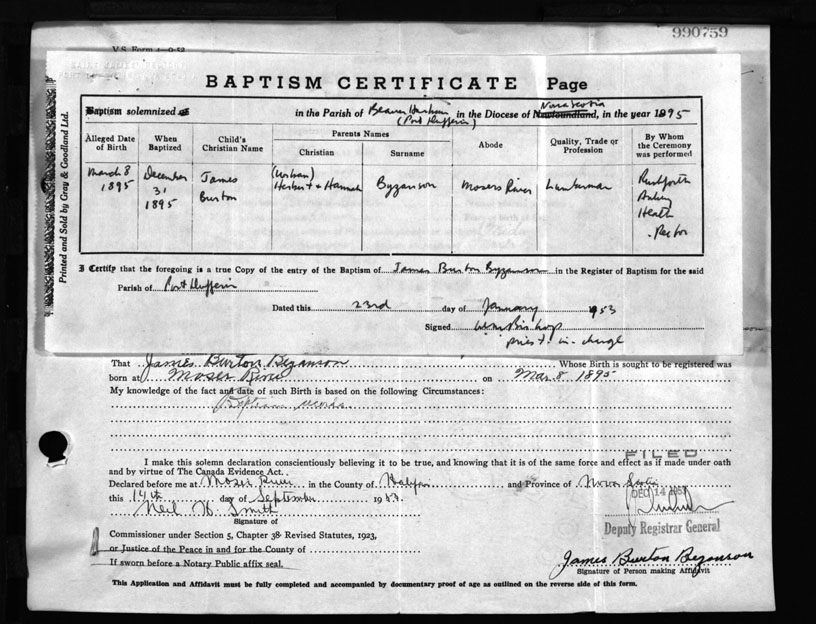 990759
V.S. Form
BAPTISM CERTIFICATE Page
Baptism solemnized at in the Parish of Beaver Harbour in the Diocese of Newfoundland, Nova Scotia in the year 1895
(Port Dufferin)
Alleged Date of Birth
When Baptized
Child's Christian Name
Parents Names
Christian
Surname
Abode
Quality, Trade or Profession
By Whom the Ceremony was performed
March 8 1895
December 31 1895
James Burton
(Urban) Herbert & Hannah
Byzanson
Mosers River
Lumberman
Rushforth Aubrey Heath - Rector
I Certify that the foregoing is a true Copy of the entry of the Baptism of James Burton Byzanson in the Register of Baptism for the said
Parish of Port Dufferin
Dated this 23rd day of January 1953
Signed
priest in charge
Printed and Sold by Gray & Goodland Ltd.
That James Burton Bezanson Whose Birth is sought to be registered was
born at Moser River on Mar. 8 1895
My knowledge of the fact and date of such Birth is based on the following Circumstances:
Baptism records
I make this solemn declaration conscientiously believing it to be true, and knowing that it is of the same force and effect as if made under oath
and by virtue of The Canada Evidence Act.
Declared before me at Moser River in the County of Halifax and Province of Nova Scotia
this 14th day of September 1953.
Neil W. Smith
Signature of
FILED
DEC 14 1953
Deputy Registrar General
Commissioner under Section 5, Chapter 38 Revised Statutes, 1923,
or Justice of the Peace in and for the County of
If sworn before a Notary Public affix seal.
James Burton Bezanson
Signature of Person making Affidavit
This Application and Affidavit must be fully completed and accompanied by documentary proof of age as outlined on the reverse side of this form.